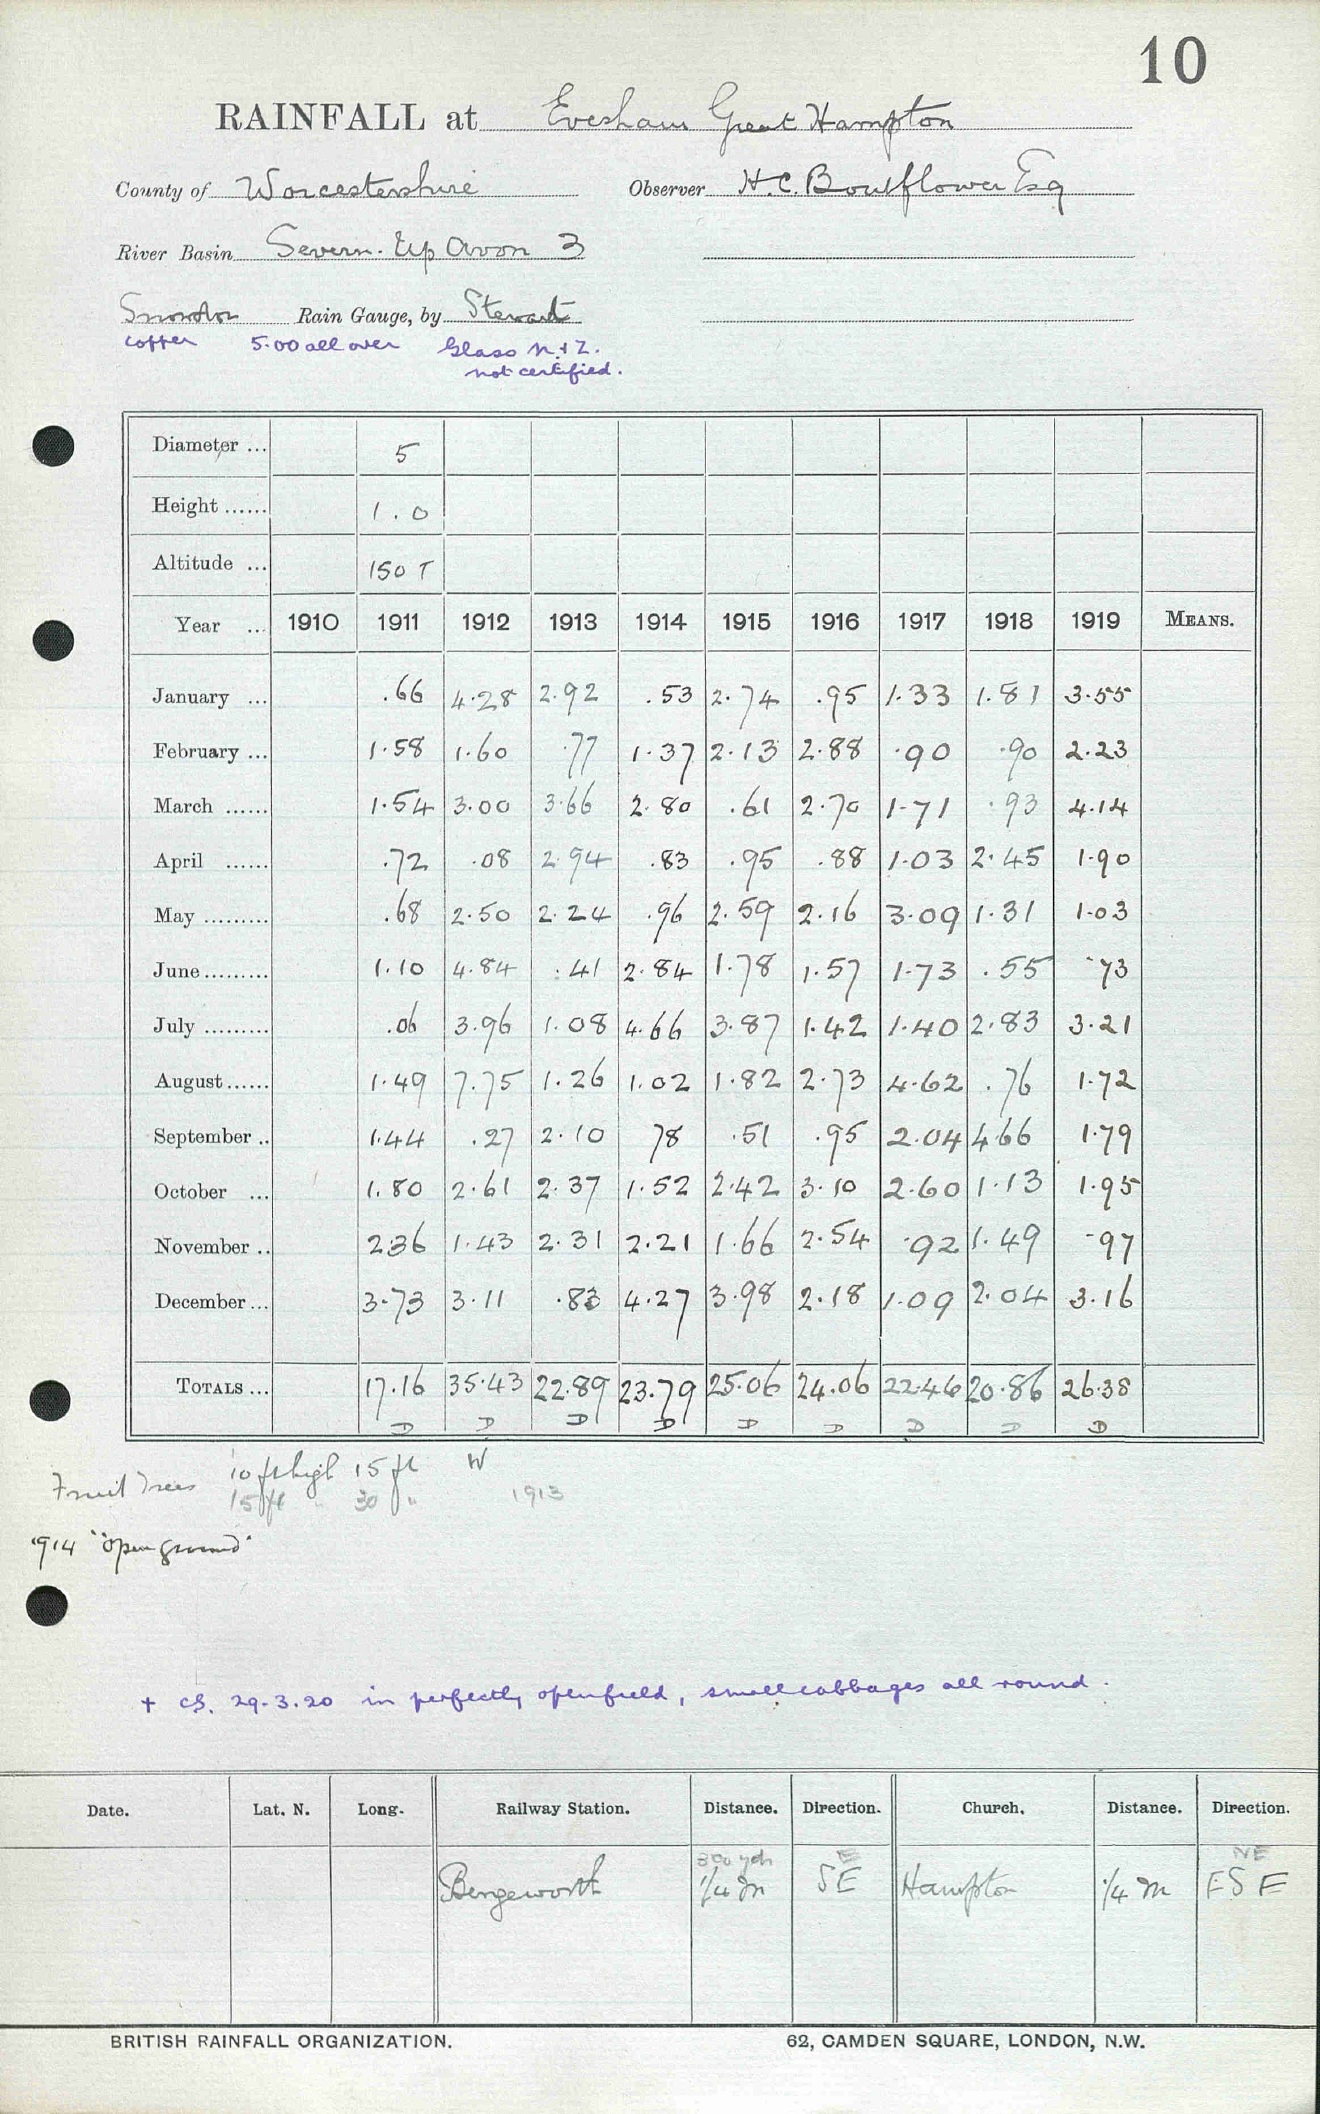 10
RAINFALL at Evesham Great Hampton
County of Worcestershire Observer H.C. Boulflower Esq
River Basin Severn. Up Avon 3
Snowdon Rain Gauge, by Stewart
copper 5.00 all over Glass N.+Z.
not certified.
Diameter ... 5
Height ...... 1.0
Altitude ... 150 T
Year ... 1910 1911 1912 1913 1914 1915 1916 1917 1918 1919 MEANS.
January ... .66 4.28 2.92 .53 2.74 .95 1.33 1.81 3.55
February ... 1.58 1.60 .77 1.37 2.13 2.88 .90 .90 2.23
March ...... 1.54 3.00 3.66 2.80 .61 2.70 1.71 .93 4.14
April ...... .72 .08 2.94 .83 .95 .88 1.03 2.45 1.90
May ......... .68 2.50 2.24 .96 2.59 2.16 3.09 1.31 1.03
June ......... 1.10 4.84 .41 2.84 1.78 1.57 1.73 .55 .73
July ......... .06 3.96 1.08 4.66 3.87 1.42 1.40 2.83 3.21
August ...... 1.49 7.75 1.26 1.02 1.82 2.73 4.62 .76 1.72
September .. 1.44 .27 2.10 78 .51 .95 2.04 4.66 1.79
October ... 1.80 2.61 2.37 1.52 2.42 3.10 2.60 1.13 1.95
November .. 2.36 1.43 2.31 2.21 1.66 2.54 .92 1.49 .97
December ... 3.73 3.11 .83 4.27 3.98 2.18 1.09 2.04 3.16
TOTALS ... 17.16 35.43 22.89 23.79 25.06 24.06 22.46 20.86 26.38
D D D D D D D D D
Fruit Trees 10 ft high 15 ft W
15 ft " 30 " 1913
1914 "open ground"
+ CS. 29.3.20 in perfectly open field, small cabbages all round.
Date. Lat. N. Long. Railway Station. Distance. Direction. Church. Distance. Direction.
300 yds E NE
Bengeworth 1/4 m SE Hampton 1/4 m ESE
BRITISH RAINFALL ORGANIZATION. 62, CAMDEN SQUARE, LONDON, N.W.